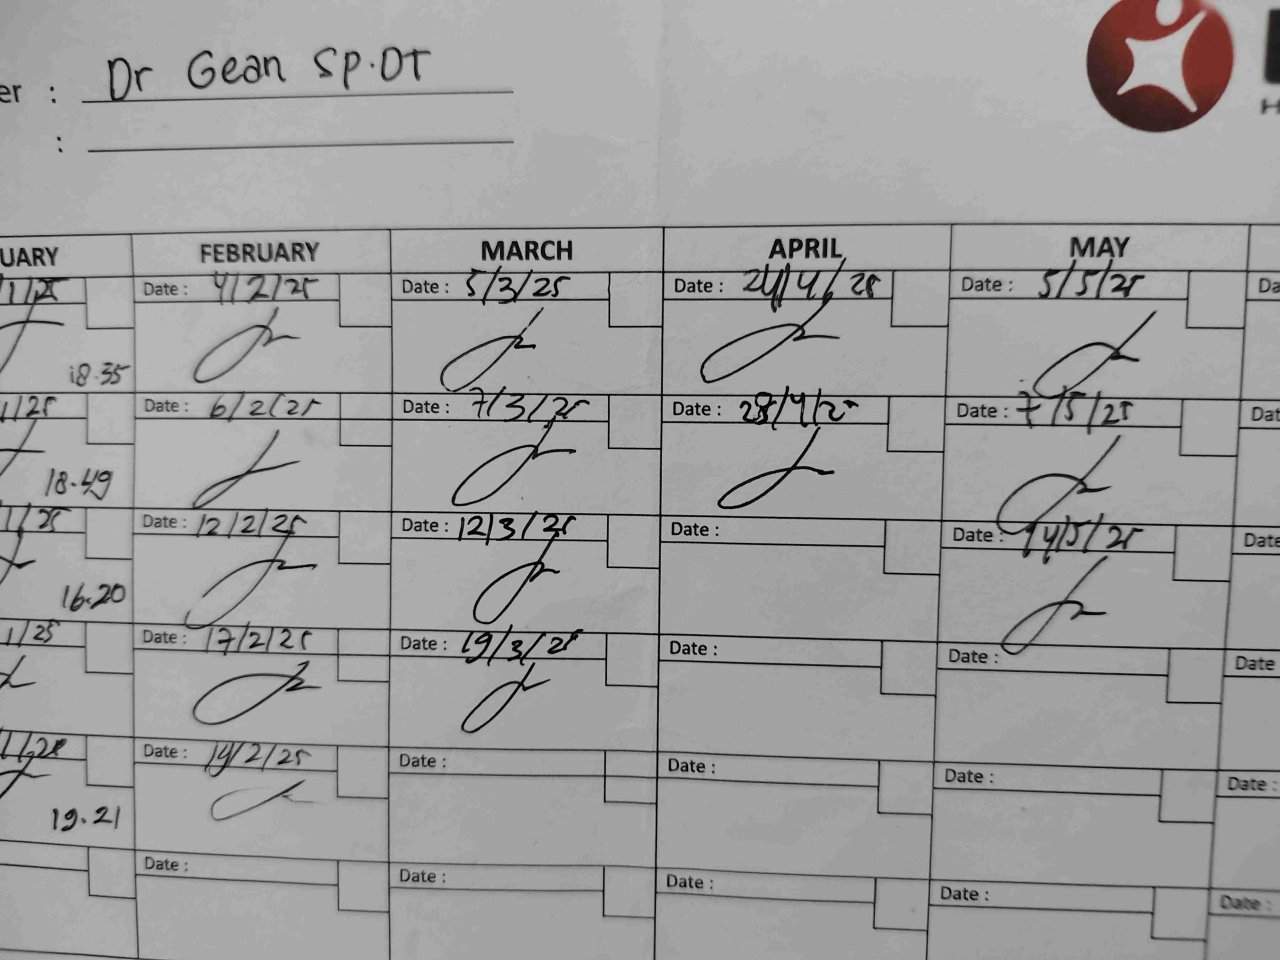 er : Dr Gean SP.DT
:
UARY FEBRUARY MARCH APRIL MAY
/1/25 Date : 4/2/25 Date : 5/3/25 Date : 24/4/25 Date : 5/5/25 Da
18.35
1/25 Date : 6/2/25 Date : 7/3/25 Date : 28/4/25 Date : 7/5/25 Dat
18.49
1/25 Date : 12/2/25 Date : 12/3/25 Date : Date : 14/5/25 Date
16.20
1/25 Date : 17/2/25 Date : 19/3/25 Date : Date : Date
1/25 Date : 19/2/25 Date : Date : Date : Date :
19.21
Date : Date : Date : Date : Date :